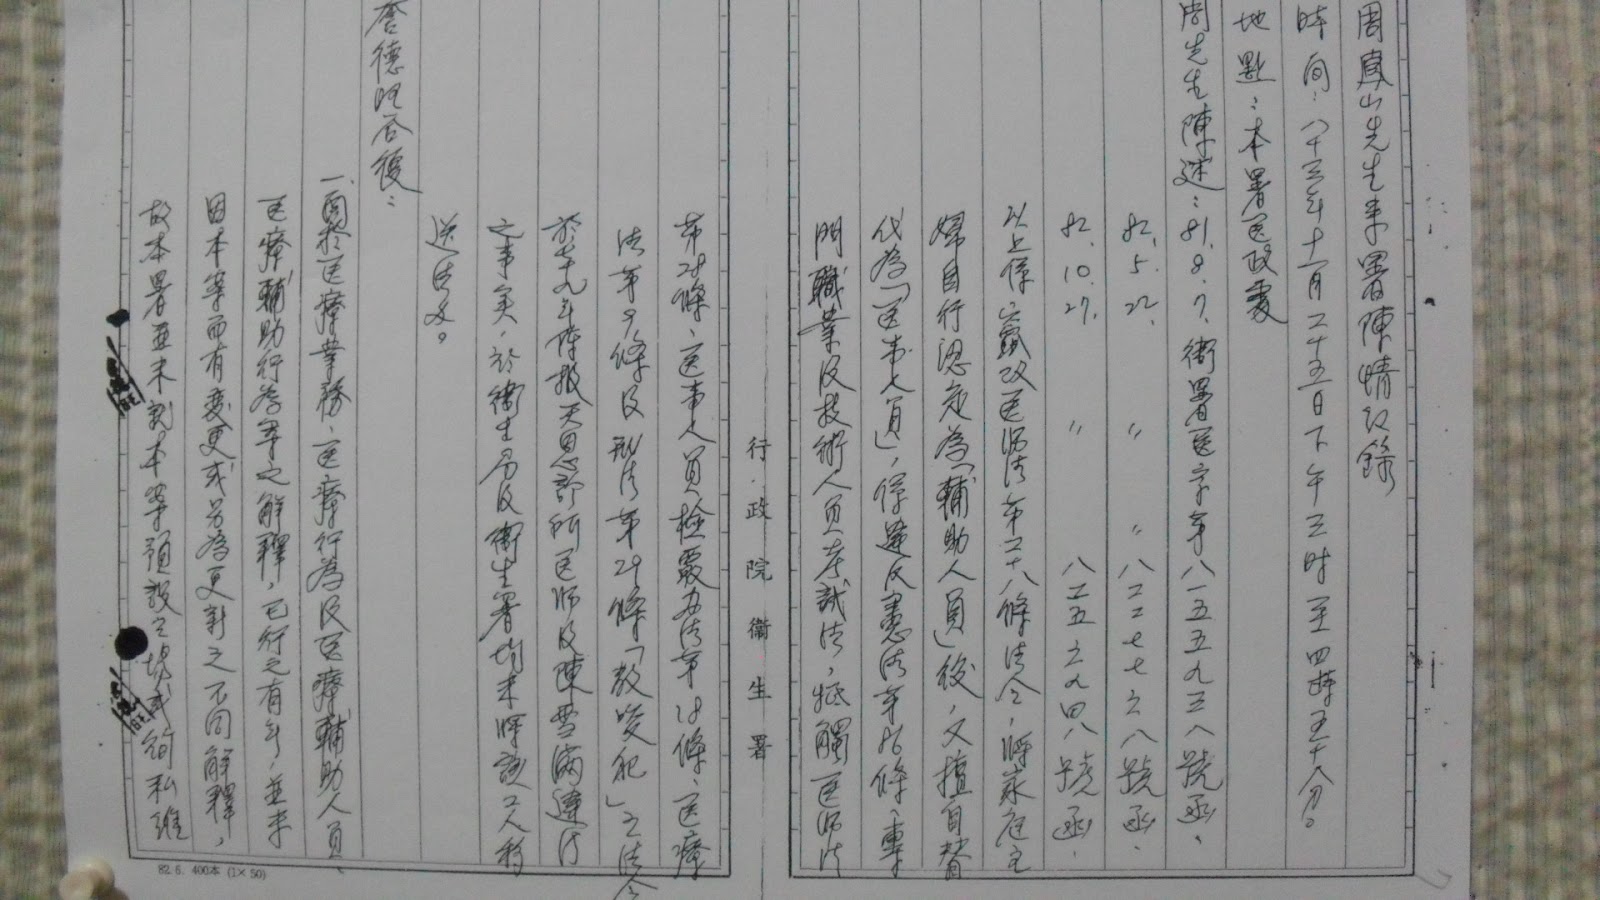 周鳳山先生來署陳情記錄
時間：八十三年十一月二十五日下午三時至四時五十八分。
地點：本署医政處
周先生陳述：81.8.7.衛署医字第八一五五九三八號函、
82.5.22.〃〃八二二七七六八號函、
82.10.27.〃八二五六九四八號函、
以上係竄改医師法第二十八條法令，將家庭主
婦自行認定為「輔助人員」後，又擅自替
代為「医事人員」，係違反憲法第86條、專
門職業及技術人員考試法，牴觸医師法
行政院衛生署
第28條、医事人員檢覈办法第18條、医療
法第9條及刑法第29條「教唆犯」之法令
於 年陳報天恩診所医師及陳雪滿違法
之事实，於衛生局及衛生署均未將該二人移
送法文。
詹德旺答復：
一、關於医療業務、医療行為及医療輔助人員、
医療輔助行為等之解釋，已行之有年，並未
因本案而有变更或另為更對之不同解釋，
故本署並未就本案預設立場或徇私維
82.6. 400本 (1×50)